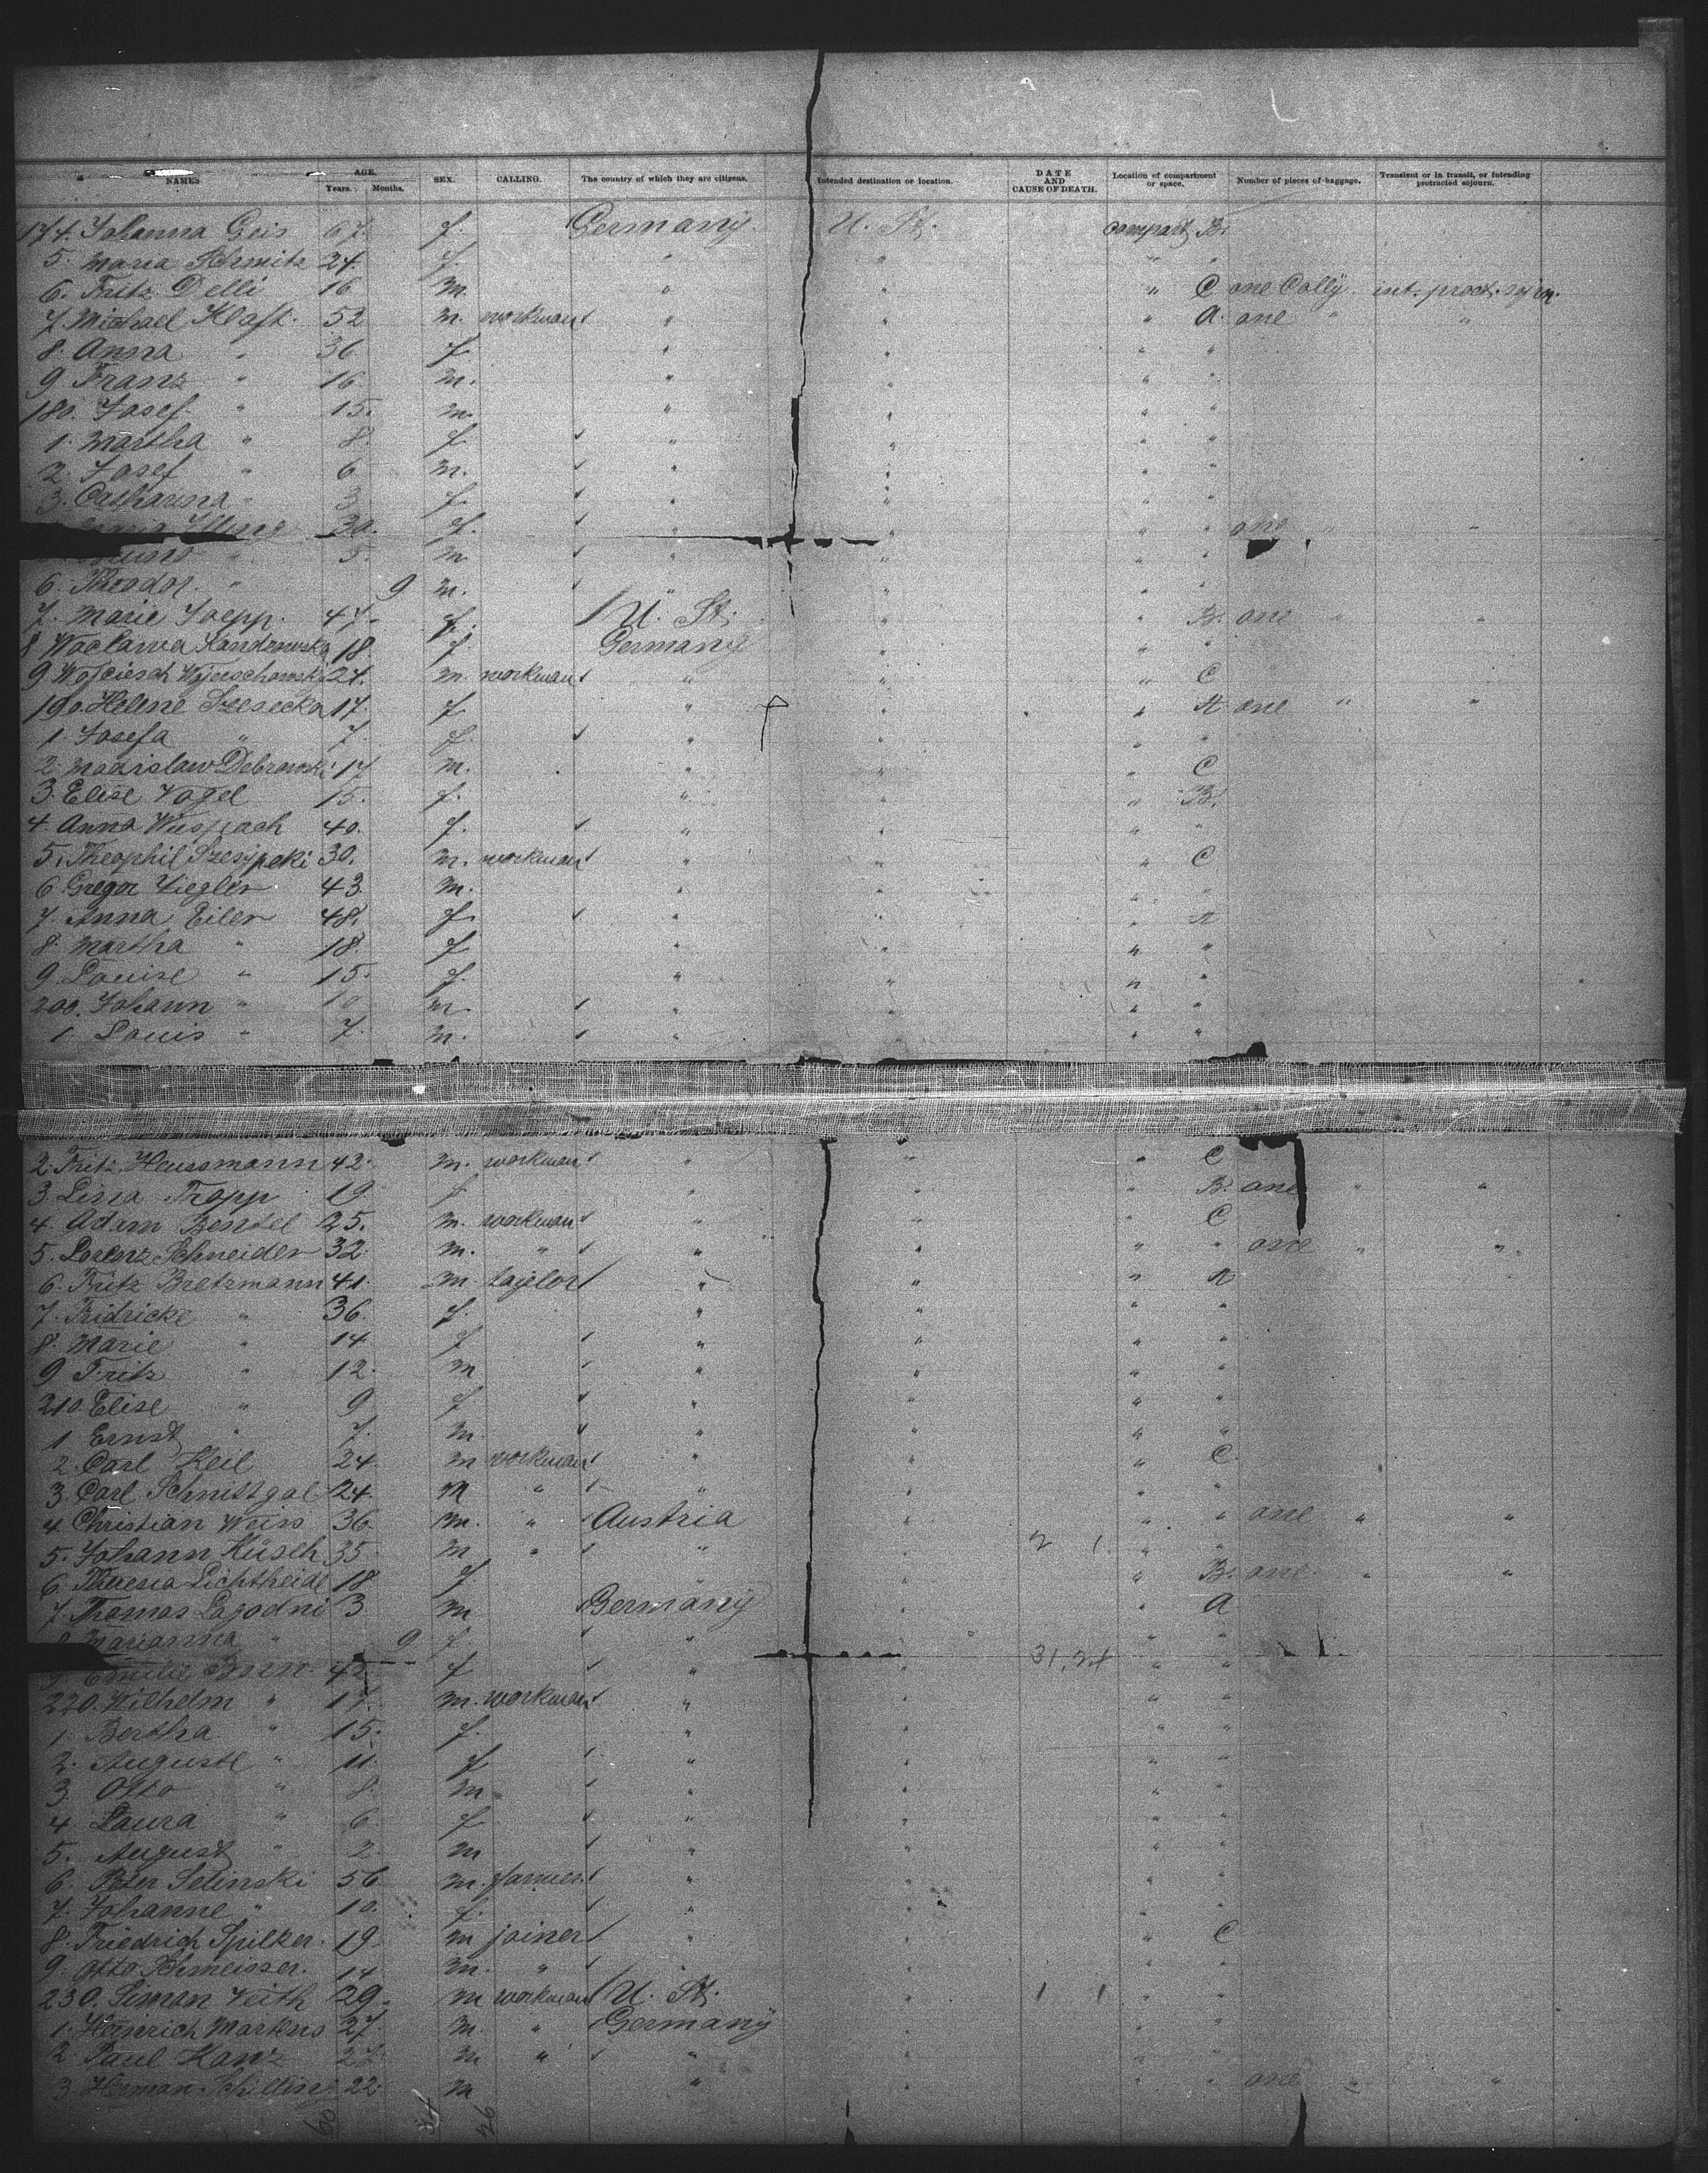 NAMES AGE. Years. Months. SEX. CALLING. The country of which they are citizens. Intended destination or location. DATE AND CAUSE OF DEATH. Location of compartment or space. Number of pieces of baggage. Transient or in transit, or intending protracted sojourn.
174. Johanna Geis 67. f. Germany U. St. compart B.
5. Maria Schmitz 24. f. " " " "
6. Fritz Delli 16 m. " " " C one Colly int. proct. sojrn.
7. Michael Klaft. 52 m. workman " " " A. one " "
8. Anna " 36 f. " " " "
9 Franz " 16 m. " " " "
180. Josef " 15. m. " " " "
1. Martha " 8. f. " " " "
2. Josef " 6 m. " " " "
3. Catharina " 3 f. " " " "
30. f. " " " " one " "
" 5. m " " " "
6. Theodor " 9 m. " " " "
7. Marie 47. f. U. St. " " B. one " "
8 Waclawa 18. f. Germany " " "
9 24. m. workman " " " C
190. Helene Szesecka 17. f " " " A one " "
1. Josefa " 7. f. " " " "
2. Debrowski 17 m. " " " C
3. Elise Vogel 15. f. " " " B.
4. Anna 40. f. " " " "
5. Theophil 30. m. workman " " " C
6 Gregor Ziegler 43. m. " " " "
7. Anna Eiler 48. f. " " " A
8. Martha " 18. f " " " "
9. Louise " 15. f. " " " "
200. Johann " 10 m " " " "
1. Louis " 7. m. " " " "
2. Fritz Heussmann 42. m. workman " " " C
3. Lina Tropp 19 f " " " B. one " "
4. Adam Bentel 25. m. workman " " " C
5. Lorenz Schneider 32. m. " " " " " one " "
6. Fritz Bretzmann 41. m taylor " " " A
7. Fridricke " 36. f. " " " "
8. Marie " 14. f " " " "
9 Fritz " 12. m " " " "
210. Elise " 9 f " " " "
1 Ernst " 7. m. " " " "
2. Carl Keil 24. m workman " " " C
3. Carl Schnittgal 24. m " " " " "
4. Christian Weiss 36. m. " Austria " " " one " "
5. Johann 35 m " " " 2 1. " "
6. Theresia Lichtheidl 18 f. " " " B. one " "
7. Thomas Lagodni 3 m Germany " " A
8. Marianna " 9 f. " " " "
9 Emilie 42 f " " 31.24 " "
220. Wilhelm " 17. m. workman " " " "
1. Bertha " 15. f. " " " "
2. Auguste " 11. f " " " "
3 Otto " 8. m " " " "
4 Laura " 6 f " " " "
5. August " 2. m " " " "
6. Peter Selinski 56 m. farmer " " " "
7. Johanne " 10. f. " " " "
8. Friedrich Spilker. 19. m joiner " " " C
9. Otto Schmeisser. 14 m. " " " " "
230. Simon Veith 29. m workman U. St. " 1 1 " "
1. Heinrich Markus 27. m. " Germany " " "
2. Paul Kanz 27. m " " " " "
3 Herman Schilling 22. m " " " " one " "
60 34 26